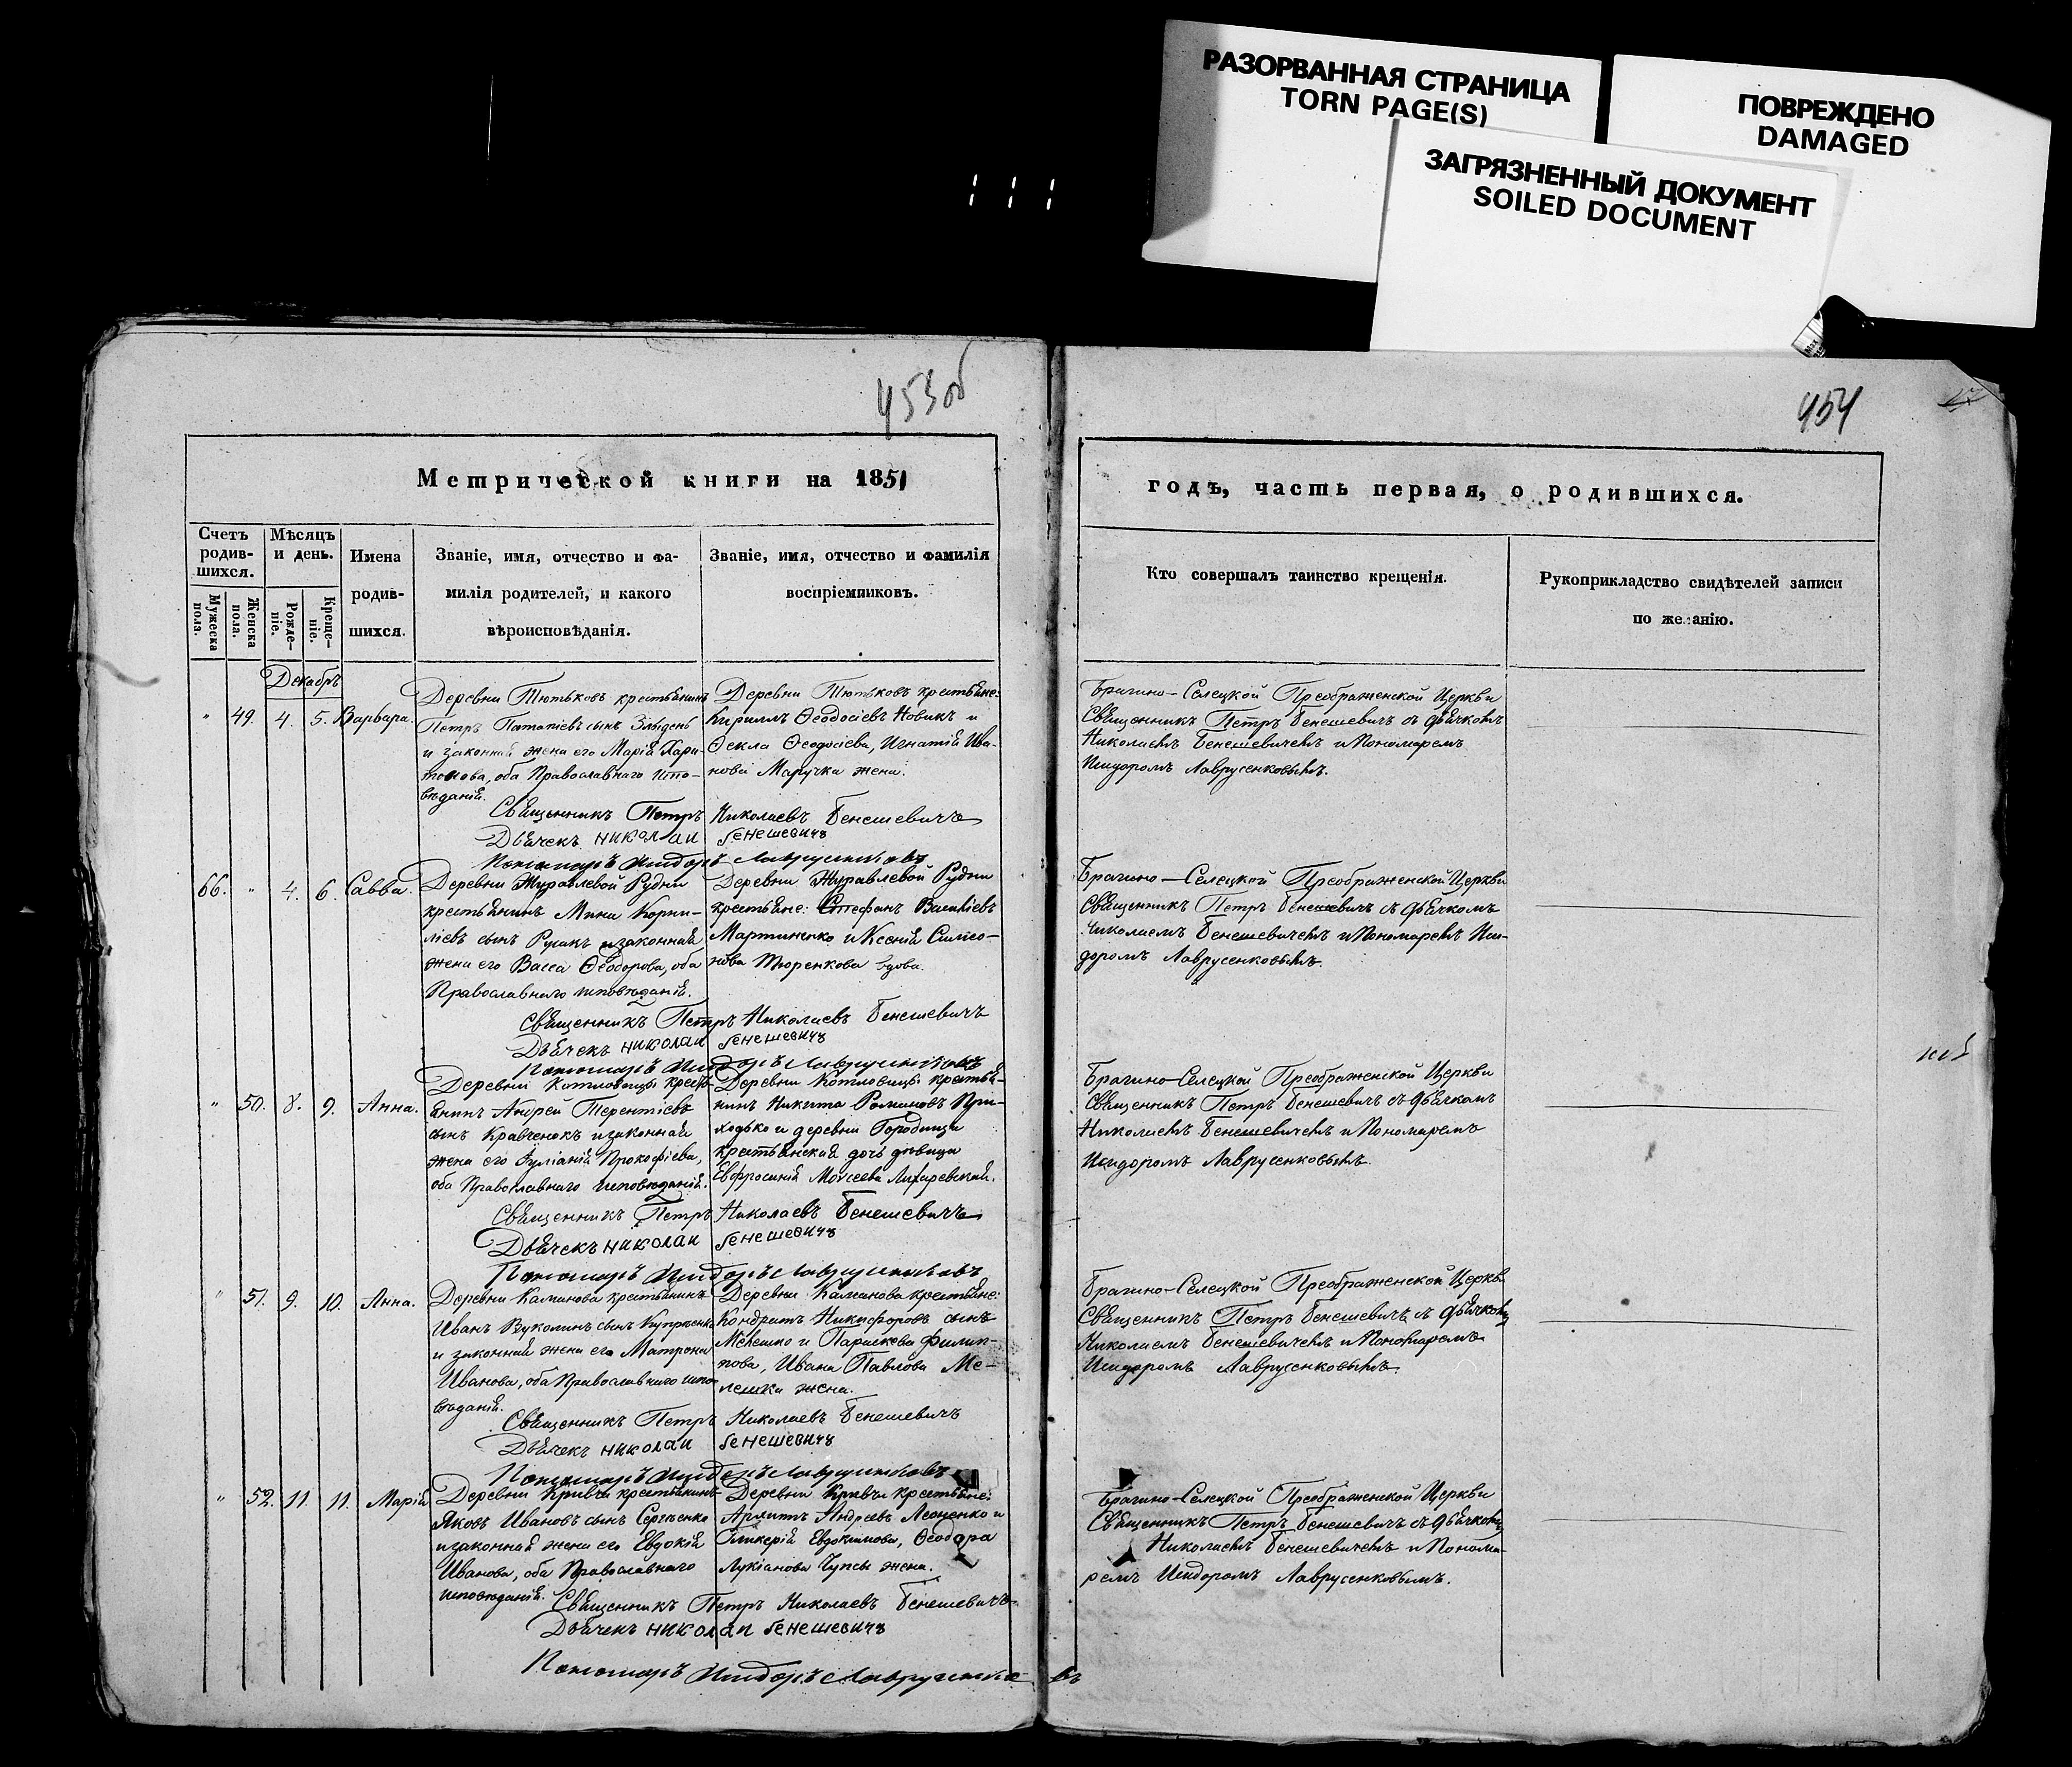 РАЗОРВАННАЯ СТРАНИЦА
TORN PAGE(S)
ПОВРЕЖДЕНО
DAMAGED
ЗАГРЯЗНЕННЫЙ ДОКУМЕНТ
SOILED DOCUMENT
453об
454
Метрической книги на 1851
годъ, часть первая, о родившихся.
Счетъ родив-шихся.
Мужеска пола.
Женска пола.
Мѣсяцъ и день.
Рожде-ніе.
Креще-ніе.
Имена
родив-
шихся.
Званіе, имя, отчество и фа-
милія родителей, и какого
вѣроисповѣданія.
Званіе, имя, отчество и фамилія
воспріемниковъ.
Кто совершалъ таинство крещенія.
Рукоприкладство свидѣтелей записи
по же анію.
Декабрь
" 49. 4. 5. Варвара.
Деревни Тютьковъ крестьянинъ
Петръ Потапіевъ сынъ
и законная жена его Марія Хари-
тонова, оба Православнаго испо-
вѣданія.
Деревни Тютьковъ крестьяне:
Кириллъ Ѳеодосіевъ Новикъ и
Ѳекла Ѳеодосіева, Игнатія Ива-
нова Маручка жена.
Священникъ Петръ Николаевъ Бенешевичъ
Дьячекъ Николаи Бенешевичъ
Пономарь Исидоръ Лаврусенковъ
Брагино-Селецкой Преображенской Церкви
Священникъ Петръ Бенешевичъ съ дьячкомъ
Николаемъ Бенешевичемъ и Пономаремъ
Исидоромъ Лаврусенковымъ.
66. " 4. 6. Савва.
Деревни Журавлевой Рудни
крестьянинъ Мина Корни-
ліевъ сынъ Русакъ и законная
жена его Васса Ѳеодорова, оба
Православнаго исповѣданія.
Деревни Журавлевой Рудни
крестьяне: Стефанъ Василіевъ
Мартиненко и Ксенія Симео-
нова Тюренкова вдова.
Священникъ Петръ Николаевъ Бенешевичъ
Дьячекъ Николаи Бенешевичъ
Пономарь Исидоръ Лаврусенковъ
Брагино-Селецкой Преображенской Церкви
Священникъ Петръ Бенешевичъ съ дьячкомъ
Николаемъ Бенешевичемъ и Пономаремъ Иси-
доромъ Лаврусенковымъ.
" 50. 8. 9. Анна.
Деревни Котловицы кресть-
янинъ Андрей Терентіевъ
сынъ Кравченокъ и законная
жена его Іуліанія Прокофіева,
оба Православнаго исповѣданія.
Деревни Котловицы крестья-
нинъ Никита Романовъ При-
ходько и деревни Городища
крестьянская дочь дѣвица
Евфросинія Моѵсеева
Священникъ Петръ Николаевъ Бенешевичъ
Дьячекъ Николаи Бенешевичъ
Пономарь Исидоръ Лаврусенковъ
Брагино-Селецкой Преображенской Церкви
Священникъ Петръ Бенешевичъ съ дьячкомъ
Николаемъ Бенешевичемъ и Пономаремъ
Исидоромъ Лаврусенковымъ.
" 51. 9. 10. Анна.
Деревни Каманова крестьянинъ
Иванъ Вуколинъ сынъ
и законная жена его Матрона
Иванова, оба Православнаго испо-
вѣданія.
Деревни Каманова крестьяне:
Кондратъ Никифоровъ сынъ
Мелешко и Параскева Филип-
пова, Ивана Павлова Ме-
лешка жена.
Священникъ Петръ Николаевъ Бенешевичъ
Дьячекъ Николаи Бенешевичъ
Пономарь Исидоръ Лаврусенковъ
Брагино-Селецкой Преображенской Церкви
Священникъ Петръ Бенешевичъ съ дьячкомъ
Николаемъ Бенешевичемъ и Пономаремъ
Исидоромъ Лаврусенковымъ.
" 52. 11. 11. Марія
Деревни Кривчи крестьянинъ
Яковъ Ивановъ сынъ Сергѣенко
и законная жена его Евдокія
Иванова, оба Православнаго
исповѣданія.
Деревни Кривчи крестьяне:
Андреевъ Леоненко и
Гликерія Евдокимова, Ѳеодора
Лукіанова Чупсы жена.
Священникъ Петръ Николаевъ Бенешевичъ
Дьячекъ Николаи Бенешевичъ
Пономарь Исидоръ Лаврусенковъ
Брагино-Селецкой Преображенской Церкви
Священникъ Петръ Бенешевичъ съ дьячкомъ
Николаемъ Бенешевичемъ и Понома-
ремъ Исидоромъ Лаврусенковымъ.